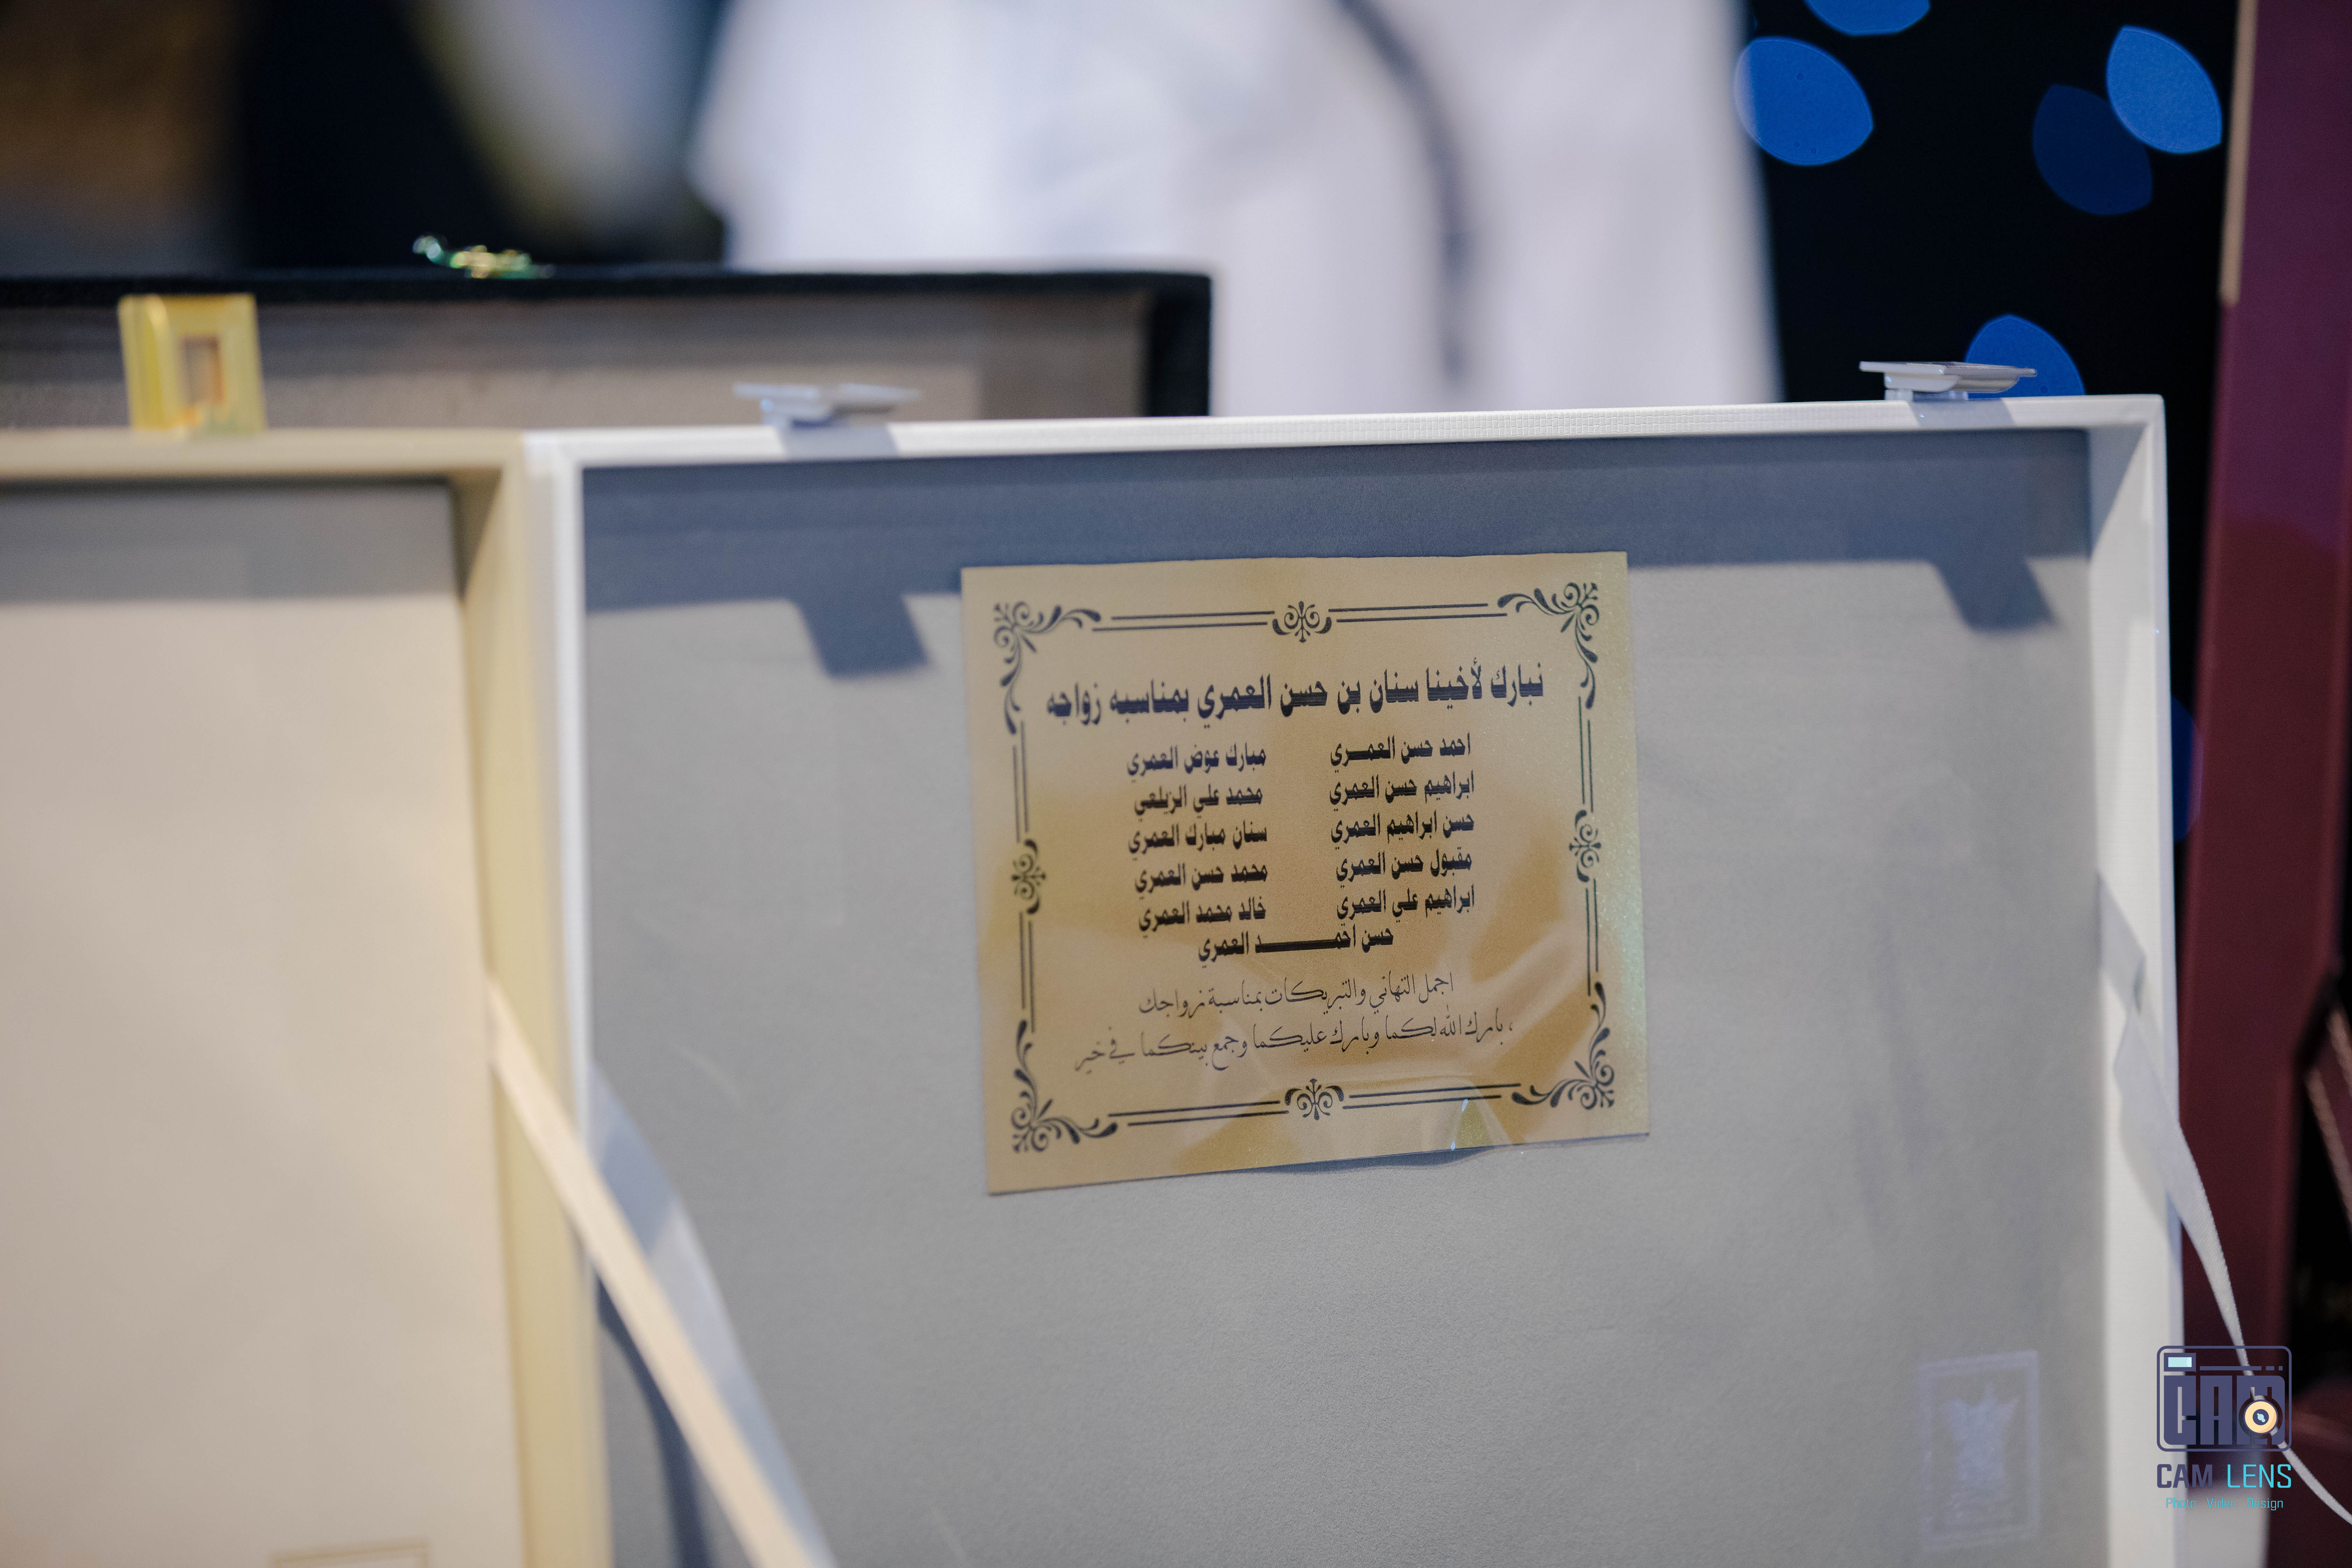 نبارك لأخينا سنان بن حسن العمري بمناسبه زواجه
احمد حسن العمـــري مبارك عوض العمري
ابراهيم حسن العمري محمد علي الزيلعي
حسن ابراهيم العمري سنان مبارك العمري
مقبول حسن العمري محمد حسن العمري
ابراهيم علي العمري خالد محمد العمري
حسن احمـــــــــد العمري
اجمل التهاني والتبريكات بمناسبة زواجك
، بارك الله لكما وبارك عليكما وجمع بينكما في خير
CAM
CAM LENS
Photo . Video . Design